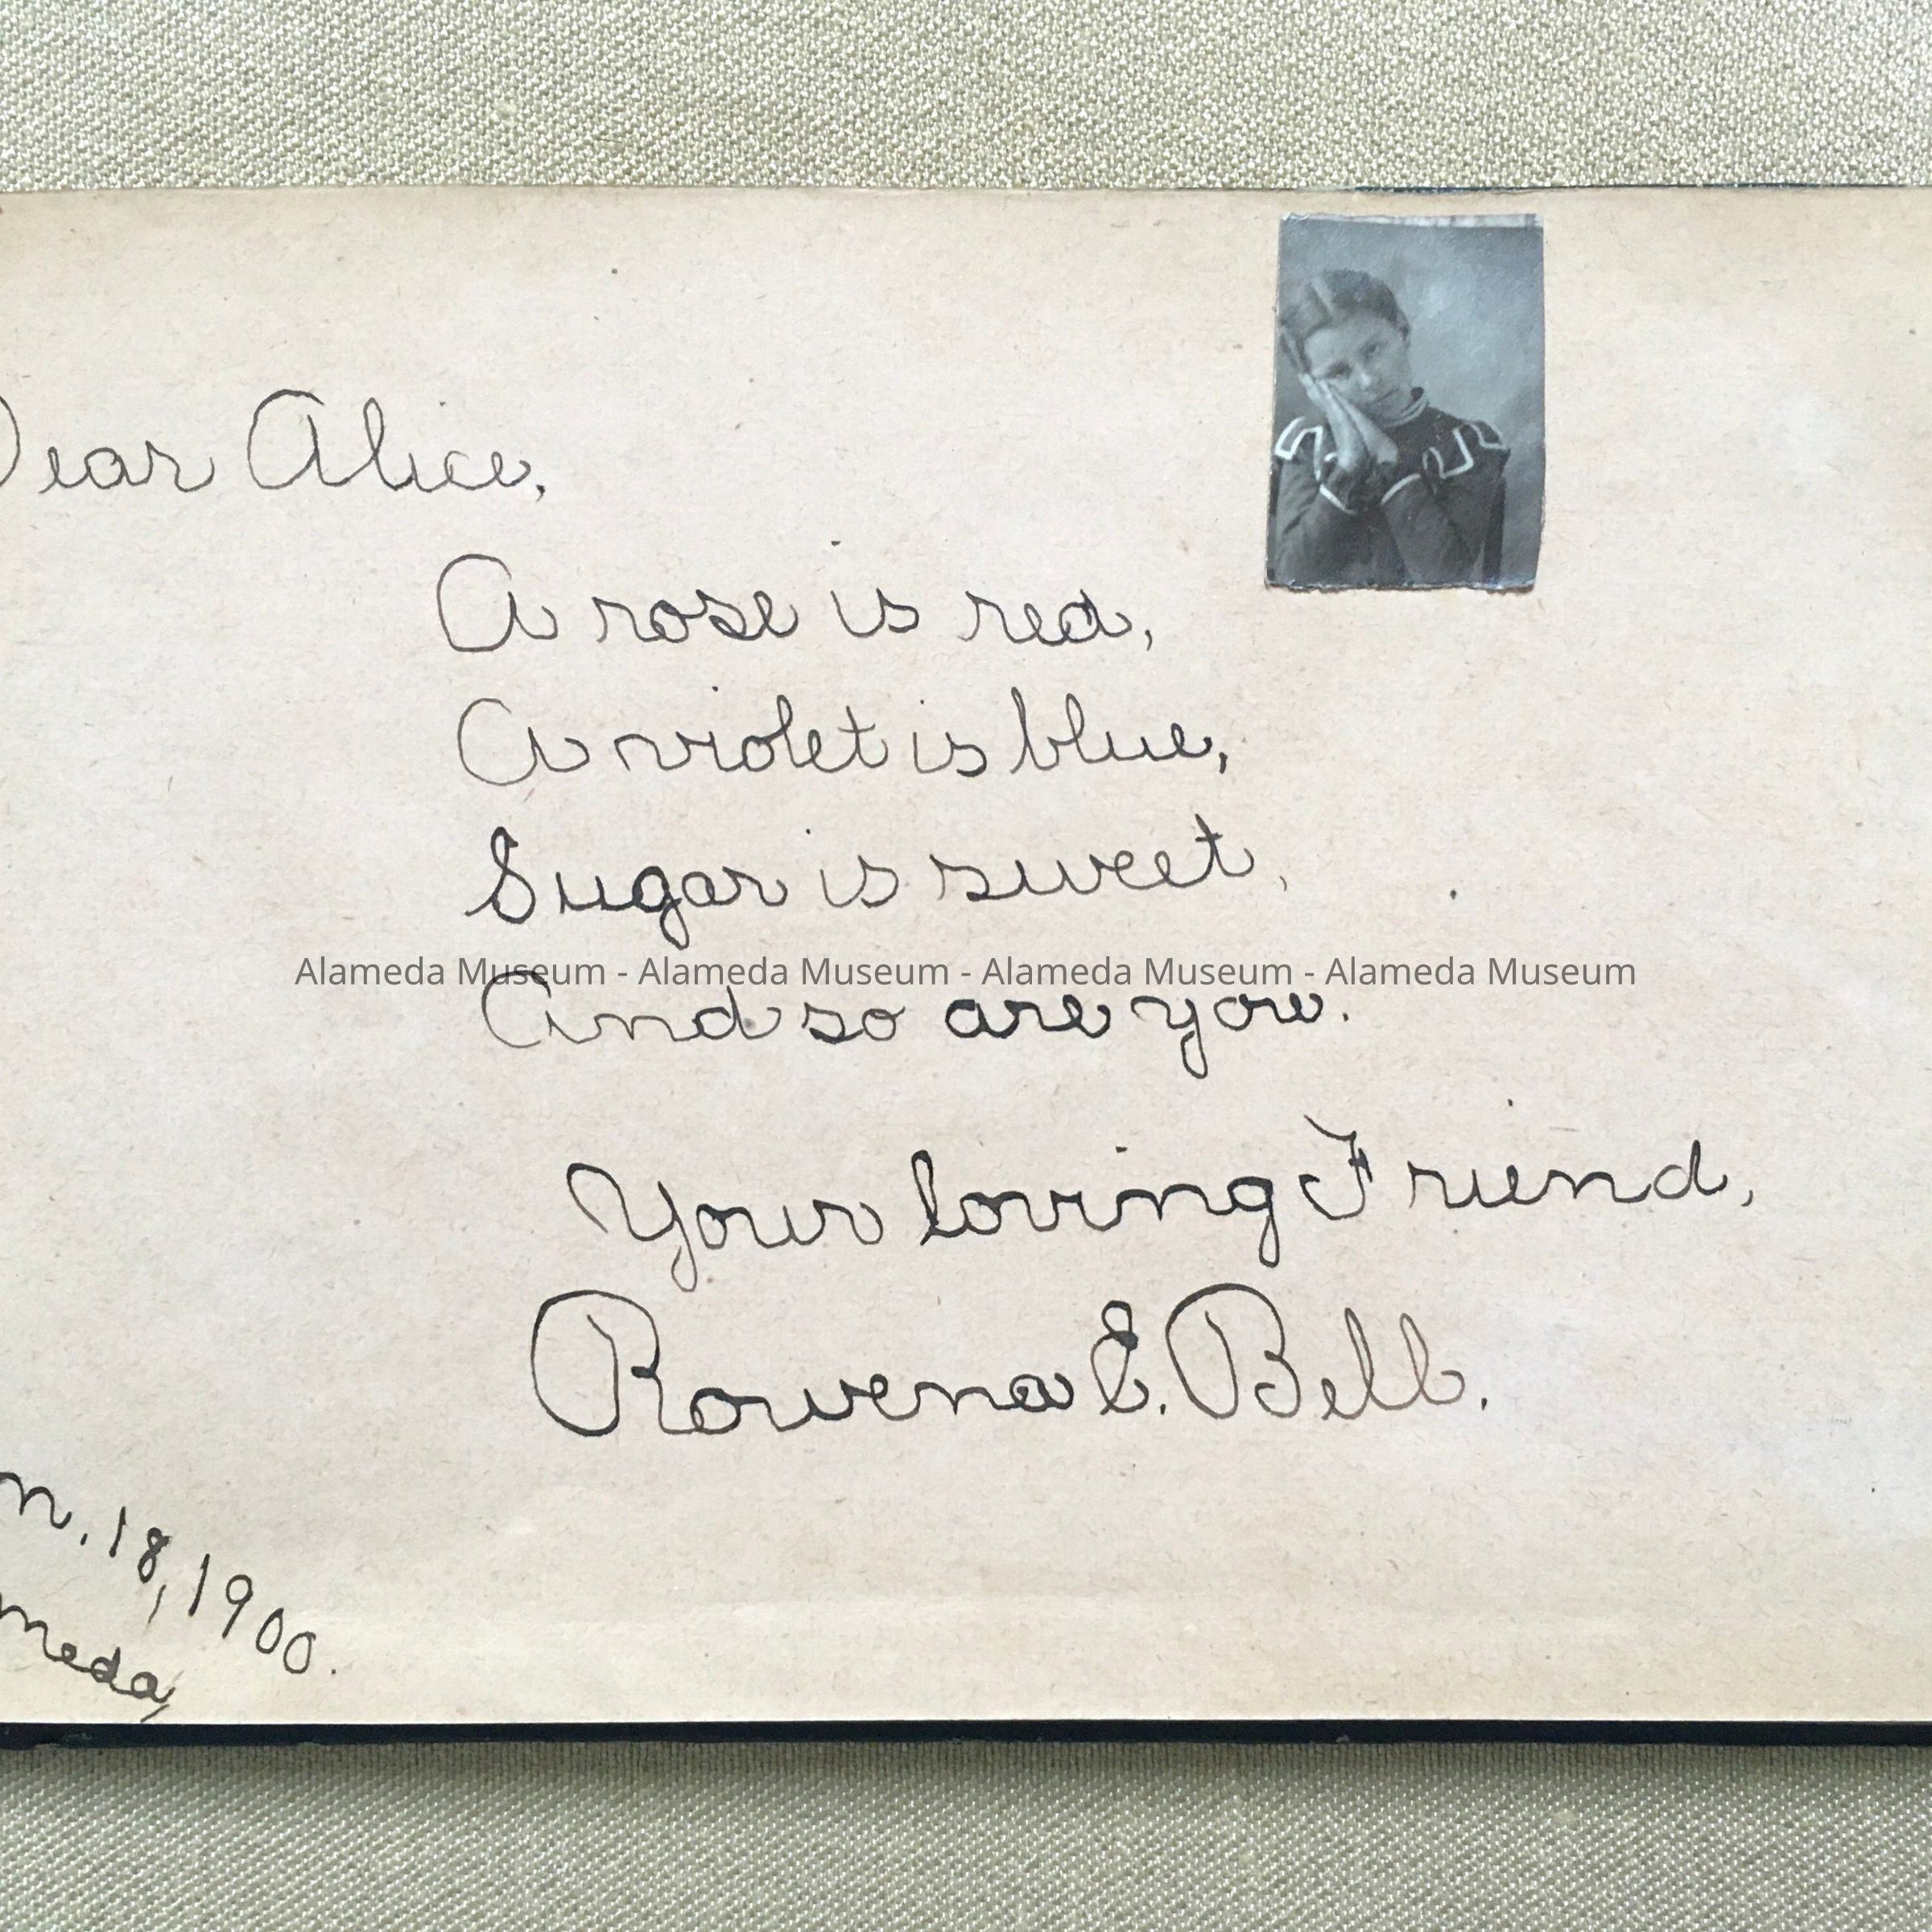 Dear Alice,
A rose is red,
A violet is blue,
Sugar is sweet,
Alameda Museum - Alameda Museum - Alameda Museum - Alameda Museum
And so are you.
Your loving Friend,
Rowena E. Bell.
n. 18, 1900.
meda,